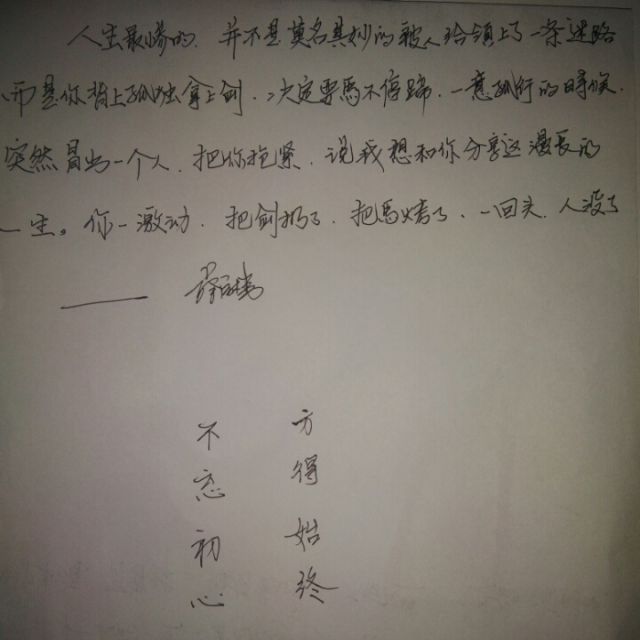 人生最惨的、并不是莫名其妙的被人给领上了一条迷路
、而是你背上孤独拿上剑、决定要马不停蹄、一意孤行的时候、
突然冒出一个人、把你抱紧、说我想和你分享这漫长的
一生。你一激动、把剑扔了、把马烤了、一回头、人没了
——
不忘初心
方得始终